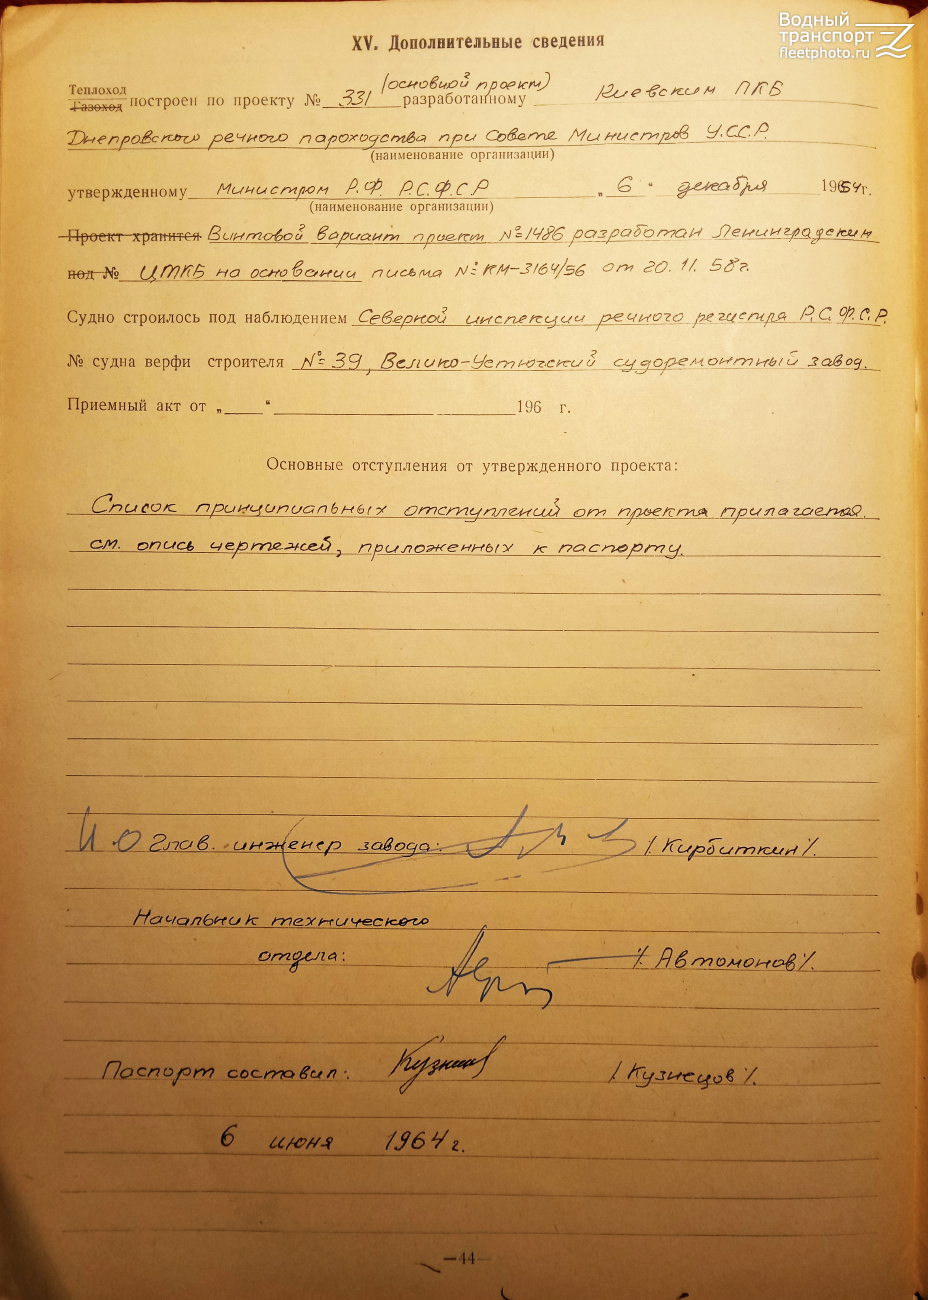 Водный
транспорт
fleetphoto.ru
XV. Дополнительные сведения
(основной проект)
Теплоход
Газоход построен по проекту № 331 разработанному Киевским ПКБ
Днепровского речного пароходства при Совете Министров У.С.С.Р.
(наименование организации)
утвержденному Министром Р.Ф. Р.С.Ф.С.Р „6“ декабря 1954г.
(наименование организации)
Проект хранится Винтовой вариант проект № 1486 разработан Ленинградским
под № ЦТКБ на основании письма № КМ-3164/56 от 20.11.58г.
Судно строилось под наблюдением Северной инспекции речного регистра Р.С.Ф.С.Р.
№ судна верфи строителя № 39, Велико-Устюгский судоремонтный завод.
Приемный акт от „ “ 196 г.
Основные отступления от утвержденного проекта:
Список принципиальных отступлений от проекта прилагается.
см. опись чертежей, приложенных к паспорту.
И О Глав. инженер завода: /Кирбиткин/.
Начальник технического
отдела: /Автомонов/.
Паспорт составил: Кузнецов /Кузнецов/.
6 июня 1964г.
—44—